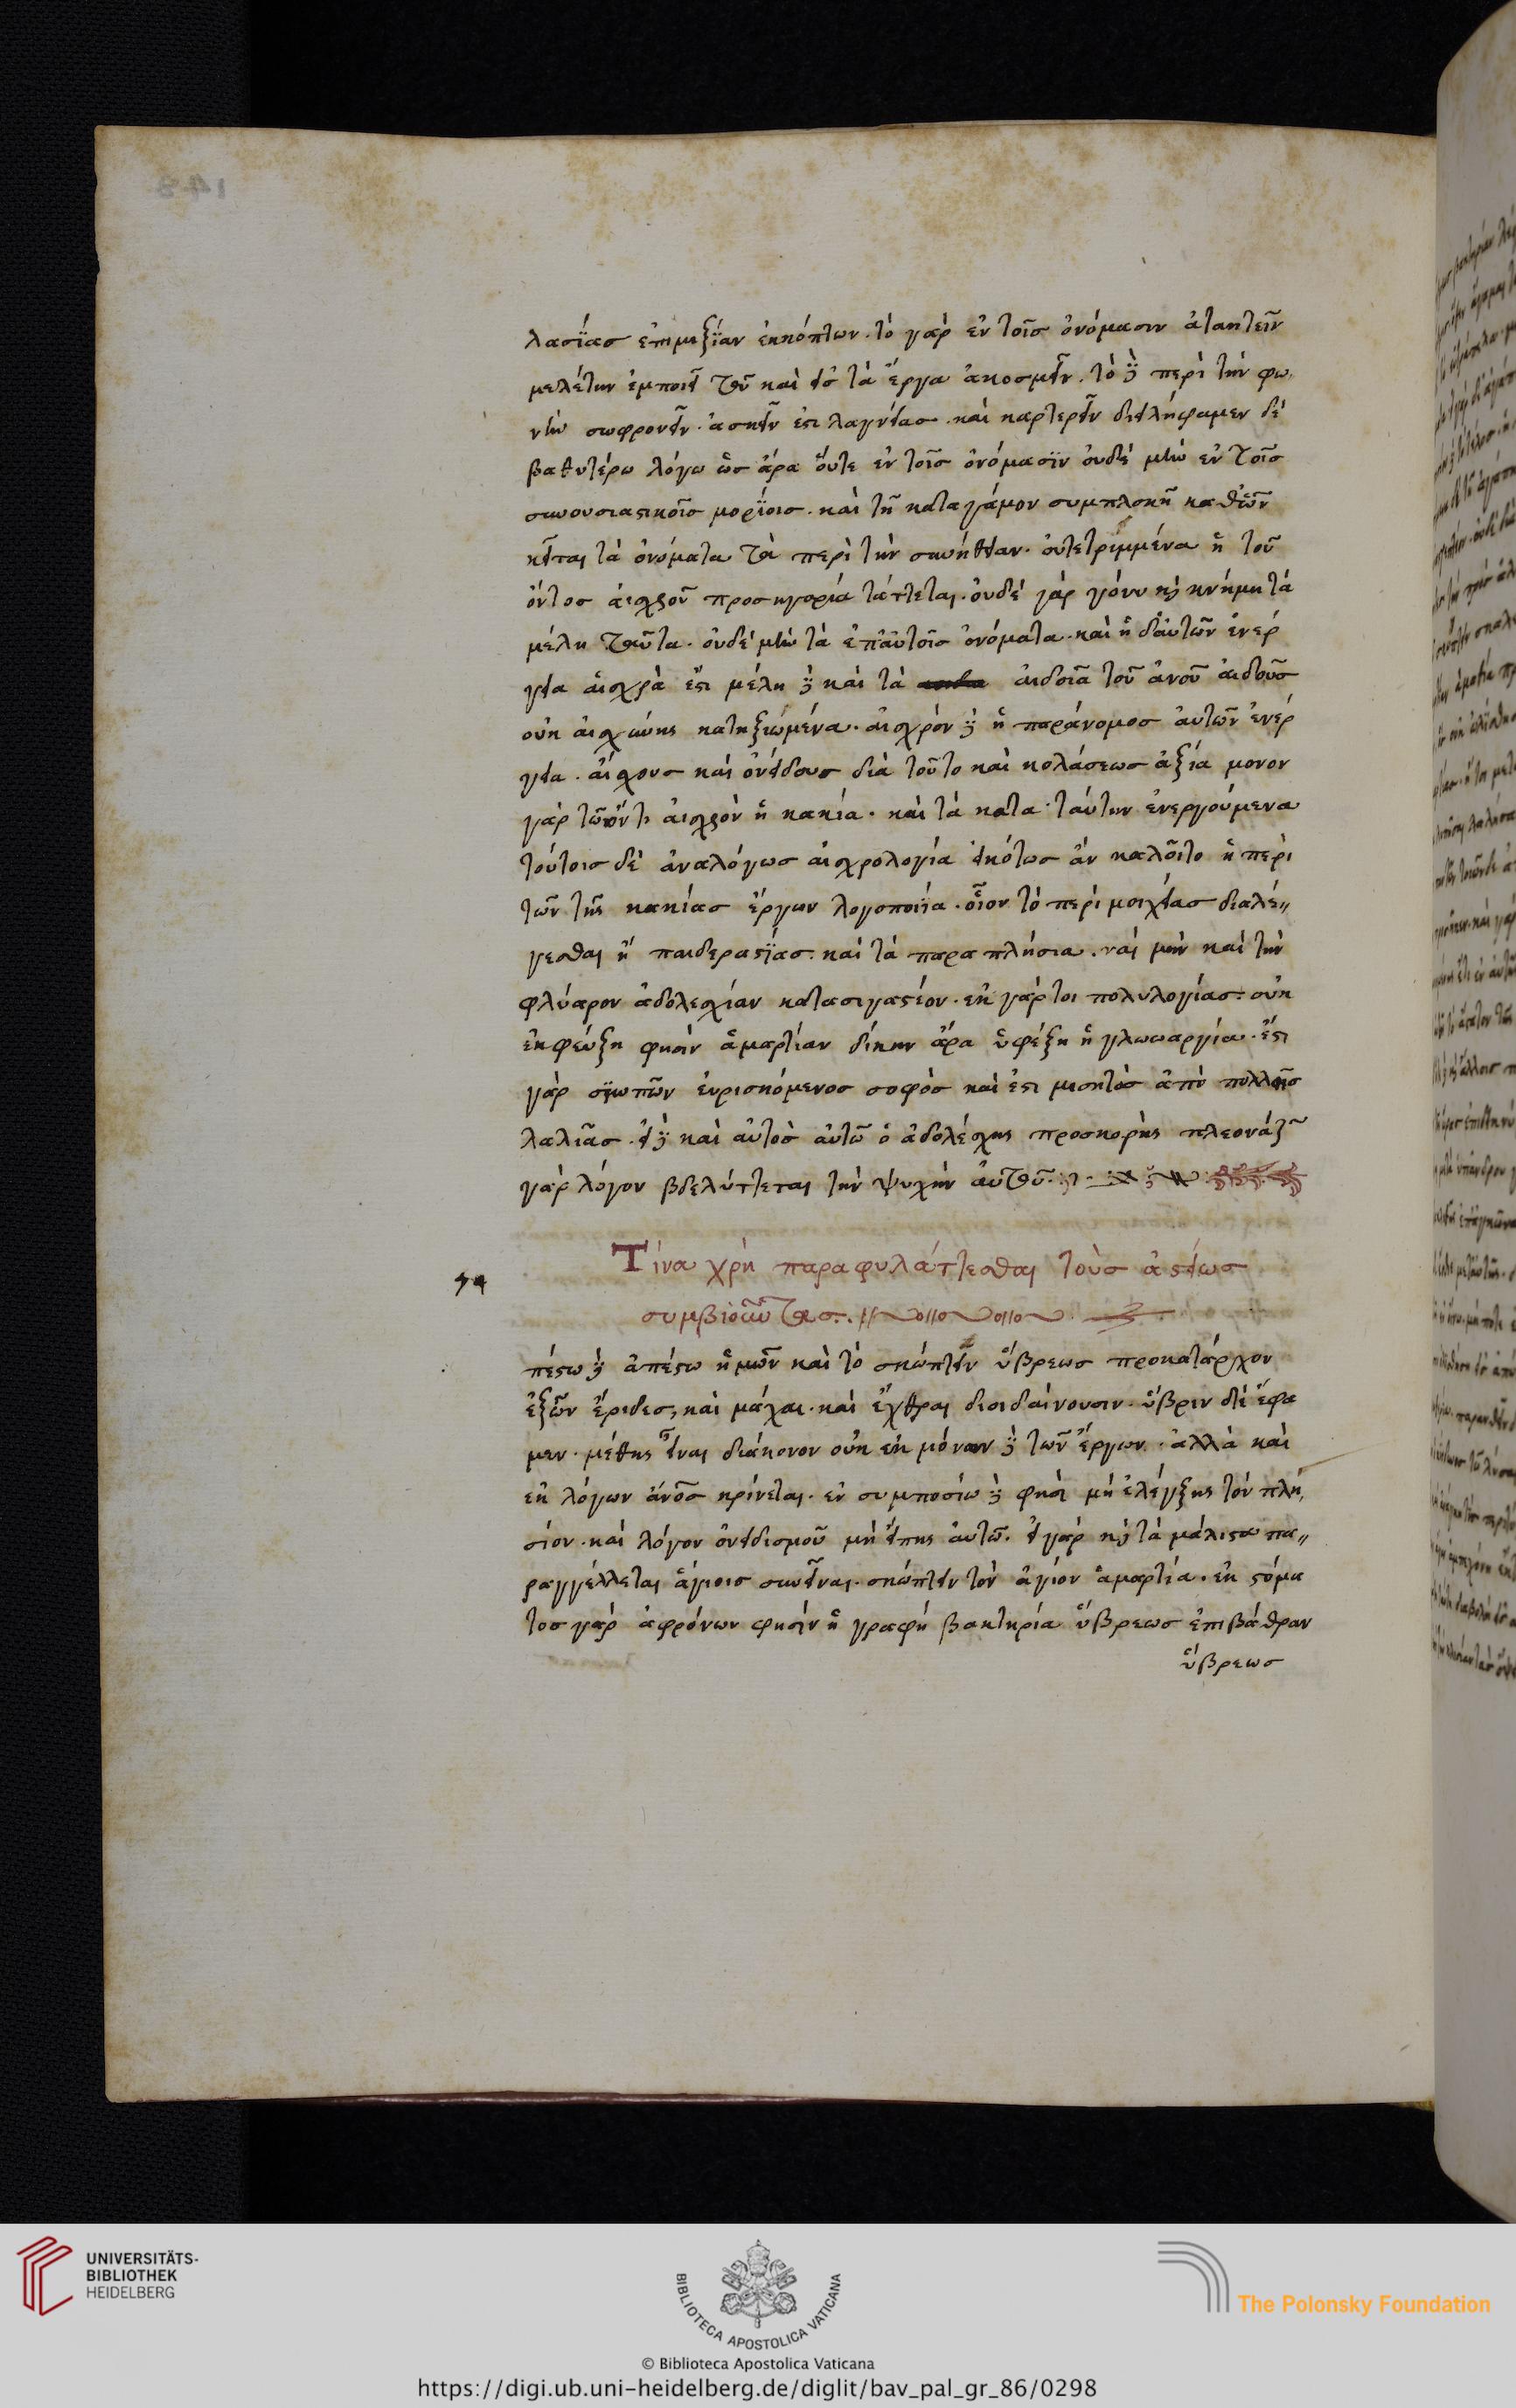 λασίας ἐπιμιξίαν ἐκκόπτων. τὸ γὰρ ἐν τοῖς ὀνόμασιν ἀτακτεῖν
μελέτην ἐμποιεῖ τοῦ καὶ εἰς τὰ ἔργα ἀκοσμεῖν. τὸ δὲ περὶ τὴν φω
νὴν σωφρονεῖν. ἀσκεῖν ἐστι λαγνείας. καὶ καρτερεῖν διειλήφαμεν δὲ
βαθυτέρω λόγω ὡς ἄρα οὔτε ἐν τοῖς ὀνόμασϊν οὐδὲ μὴν ἐν τοῖς
συνουσιαστικοῖς μορίοις. καὶ τῆ κατα γάμον συμπλοκῆ καθ' ὧν
κεῖται τὰ ὀνόματα τὰ περὶ τὴν συνήθειαν. οὐ τετριμμένα ἡ τοῦ
ὄντος αἰσχροῦ προσηγορία τάττεται. οὐδὲ γὰρ γόνυ καὶ κνήμη τὰ
μέλη ταῦτα. οὐδὲ μὴν τὰ ἐπ' αὐτοῖς ὀνόματα. καὶ ἡ δι' αὐτῶν ἐνέρ
γεια αἰσχρὰ ἔστι μέλη δὲ καὶ τὰ αἰδοῖα τοῦ ἀνοῦ αἰδοῦς
οὐκ αἰσχύνης κατηξιωμένα. αἰσχρὸν δὲ ἡ παράνομος αὐτῶν ἐνέρ
γεια. αἴσχους καὶ ὀνείδους διὰ τοῦτο καὶ κολάσεως ἀξία μονον
γὰρ τῶ ὄντι αἰσχρὸν ἡ κακία. καὶ τὰ κατα ταύτην ἐνεργούμενα
τούτοις δὲ ἀναλόγως αἰσχρολογία εἰκότως ἂν καλοῖτο ἡ περὶ
τῶν τῆς κακίας ἔργων λογοποιΐα. οἷον τὸ περὶ μοιχείας διαλέ
γεσθαι ἢ παιδεραστίας. καὶ τὰ παραπλήσια. ναὶ μὴν καὶ τὴν
φλύαρον ἀδολεσχίαν κατασιγαστέον. ἐκ γάρ τοι πολυλογίας. οὐκ
ἐκφεύξη φησὶν ἁμαρτίαν δίκην ἄρα ὑφέξη ἡ γλωσσαργία. ἔστι
γὰρ σϊωπῶν εὑρισκόμενος σοφὸς καὶ ἔστι μισητὸς ἀπὸ πολλῆς
λαλιᾶς. εἰ δὲ καὶ αὐτὸς αὐτῶ ὁ ἀδολέσχης προσκορὴς πλεονάζων
γὰρ λόγον βδελύττεται τὴν ψυχὴν αὐτοῦ.
Τίνα χρὴ παραφυλάττεσθαι τοὺς ἀστείως
συμβιοῦντας.
πέστω δὲ ἀπέστω ἡμῶν καὶ τὸ σκώπτειν ὕβρεως προκατάρχον
ἐξ ὧν ἔριδες, καὶ μάχαι. καὶ ἔχθραι διοιδαίνουσιν. ὕβριν δὲ ἔφα
μεν. μέθης εἶναι διάκονον οὐκ ἐκ μόνων δὲ τῶν ἔργων. ἀλλὰ καὶ
ἐκ λόγων ἄνος κρίνεται. ἐν συμποσίω δὲ φησὶ μὴ ἐλέγξης τὸν πλη
σίον. καὶ λόγον ὀνειδισμοῦ μὴ εἴπης αὐτῶ. εἰ γὰρ καὶ τὰ μάλιστα πα
ραγγέλλεται ἁγίοις συνεῖναι. σκώπτειν τὸν ἁγίον ἁμαρτία. ἐκ στόμα
τος γὰρ ἀφρόνων φησὶν ἡ γραφὴ βακτηρία ὕβρεως ἐπιβάθραν
ὕβρεως
UNIVERSITÄTS-
BIBLIOTHEK
HEIDELBERG
BIBLIOTECA APOSTOLICA VATICANA
The Polonsky Foundation
© Biblioteca Apostolica Vaticana
https://digi.ub.uni-heidelberg.de/diglit/bav_pal_gr_86/0298